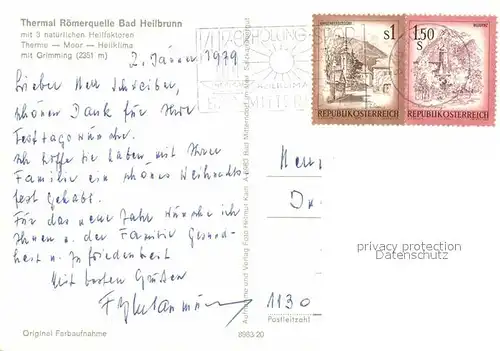 Thermal Römerquelle Bad Heilbrunn
mit 3 natürlichen Heilfaktoren
Therme — Moor — Heilklima
mit Grimming (2351 m)
2. Jänner 1979
Lieber Herr Schreiber,
schönen Dank für Ihre
Festtagswünsche.
Ich hoffe Sie haben mit Ihrer
Familie ein schönes Weihnachts
fest gehabt.
Für das neue Jahr wünsche ich
Ihnen u. der Familie Gesund-
heit u. Zufriedenheit
Mit besten Grüßen
Original Farbaufnahme
8983/20
Aufnahme und Verlag Foto Helmut Kain A-8983 Bad Mitterndorf
ERHOLUNG
HEILKLIMA
MITTERN
S1
REPUBLIK ÖSTERREICH
1.50 S
REPUBLIK ÖSTERREICH
Herr
privacy protection
Datenschutz
1130
Postleitzahl